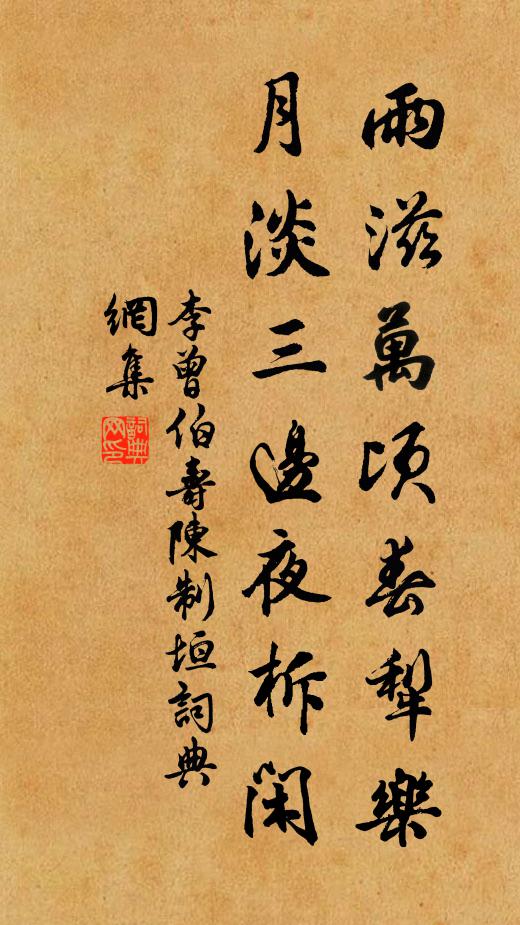 雨滋萬頃春犁樂
月淡三邊夜柝閑
李曾伯壽陳制垣詞典
網集
詞典
网印